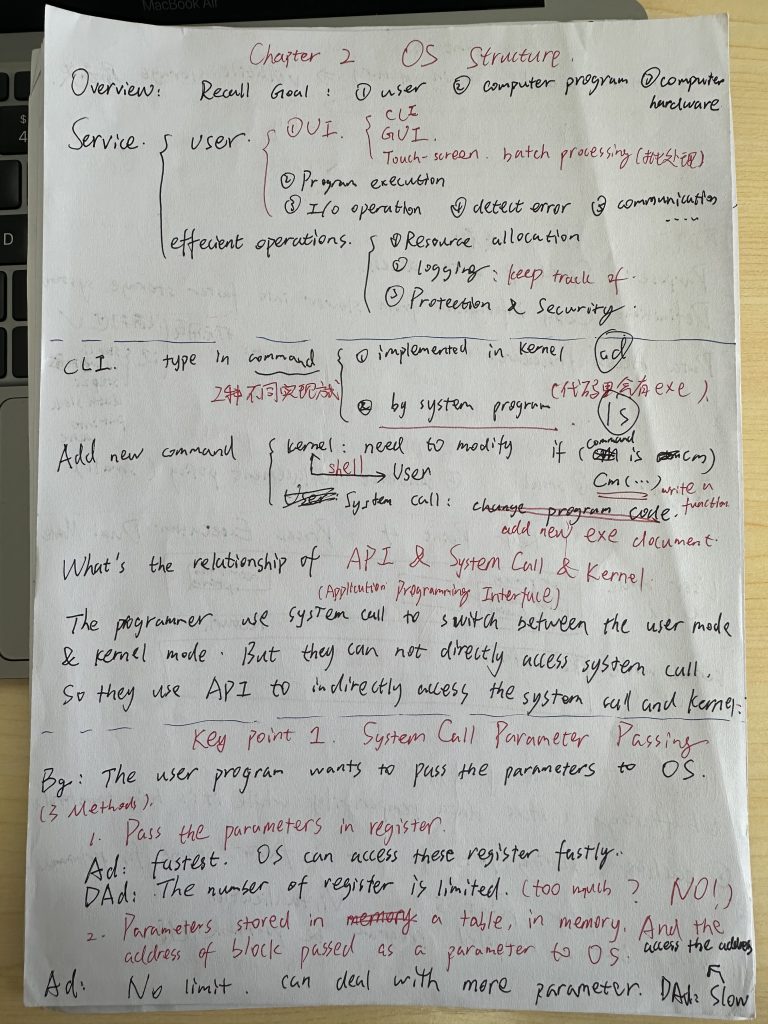 MacBook Air
$
4
D
Chapter 2 OS Structure.
Overview: Recall Goal : ① user ② computer program ③ computer hardware
Service. user. ① UI. CLI
GUI.
Touch-screen. batch processing (批处理)
② Program execution
③ I/O operation ④ detect error ⑤ communication
.....
effecient operations. ① Resource allocation
② logging : keep track of .
③ Protection & Security.
CLI. type in command ① implemented in kernel cd
2种不同实现方式 (代码里含有exe).
② by system program . ls
Add new command kernel : need to modify if (command is cm)
shell User Cm(...) write a function
System call : change program code.
add new exe document.
What's the relationship of API & System Call & Kernel.
(Application Programming Interface)
The programmer use system call to switch between the user mode
& kernel mode. But they can not directly access system call.
So they use API to indirectly access the system call and kernel.
Key point 1. System Call Parameter Passing
Bg: The user program wants to pass the parameters to OS.
(3 Methods).
1. Pass the parameters in register.
Ad: fastest. OS can access these register fastly.
DAd: The number of register is limited. (too much ? NO!)
2. Parameters stored in memory a table, in memory. And the
address of block passed as a parameter to OS. access the address
Ad: No limit. can deal with more parameter. DAd: Slow